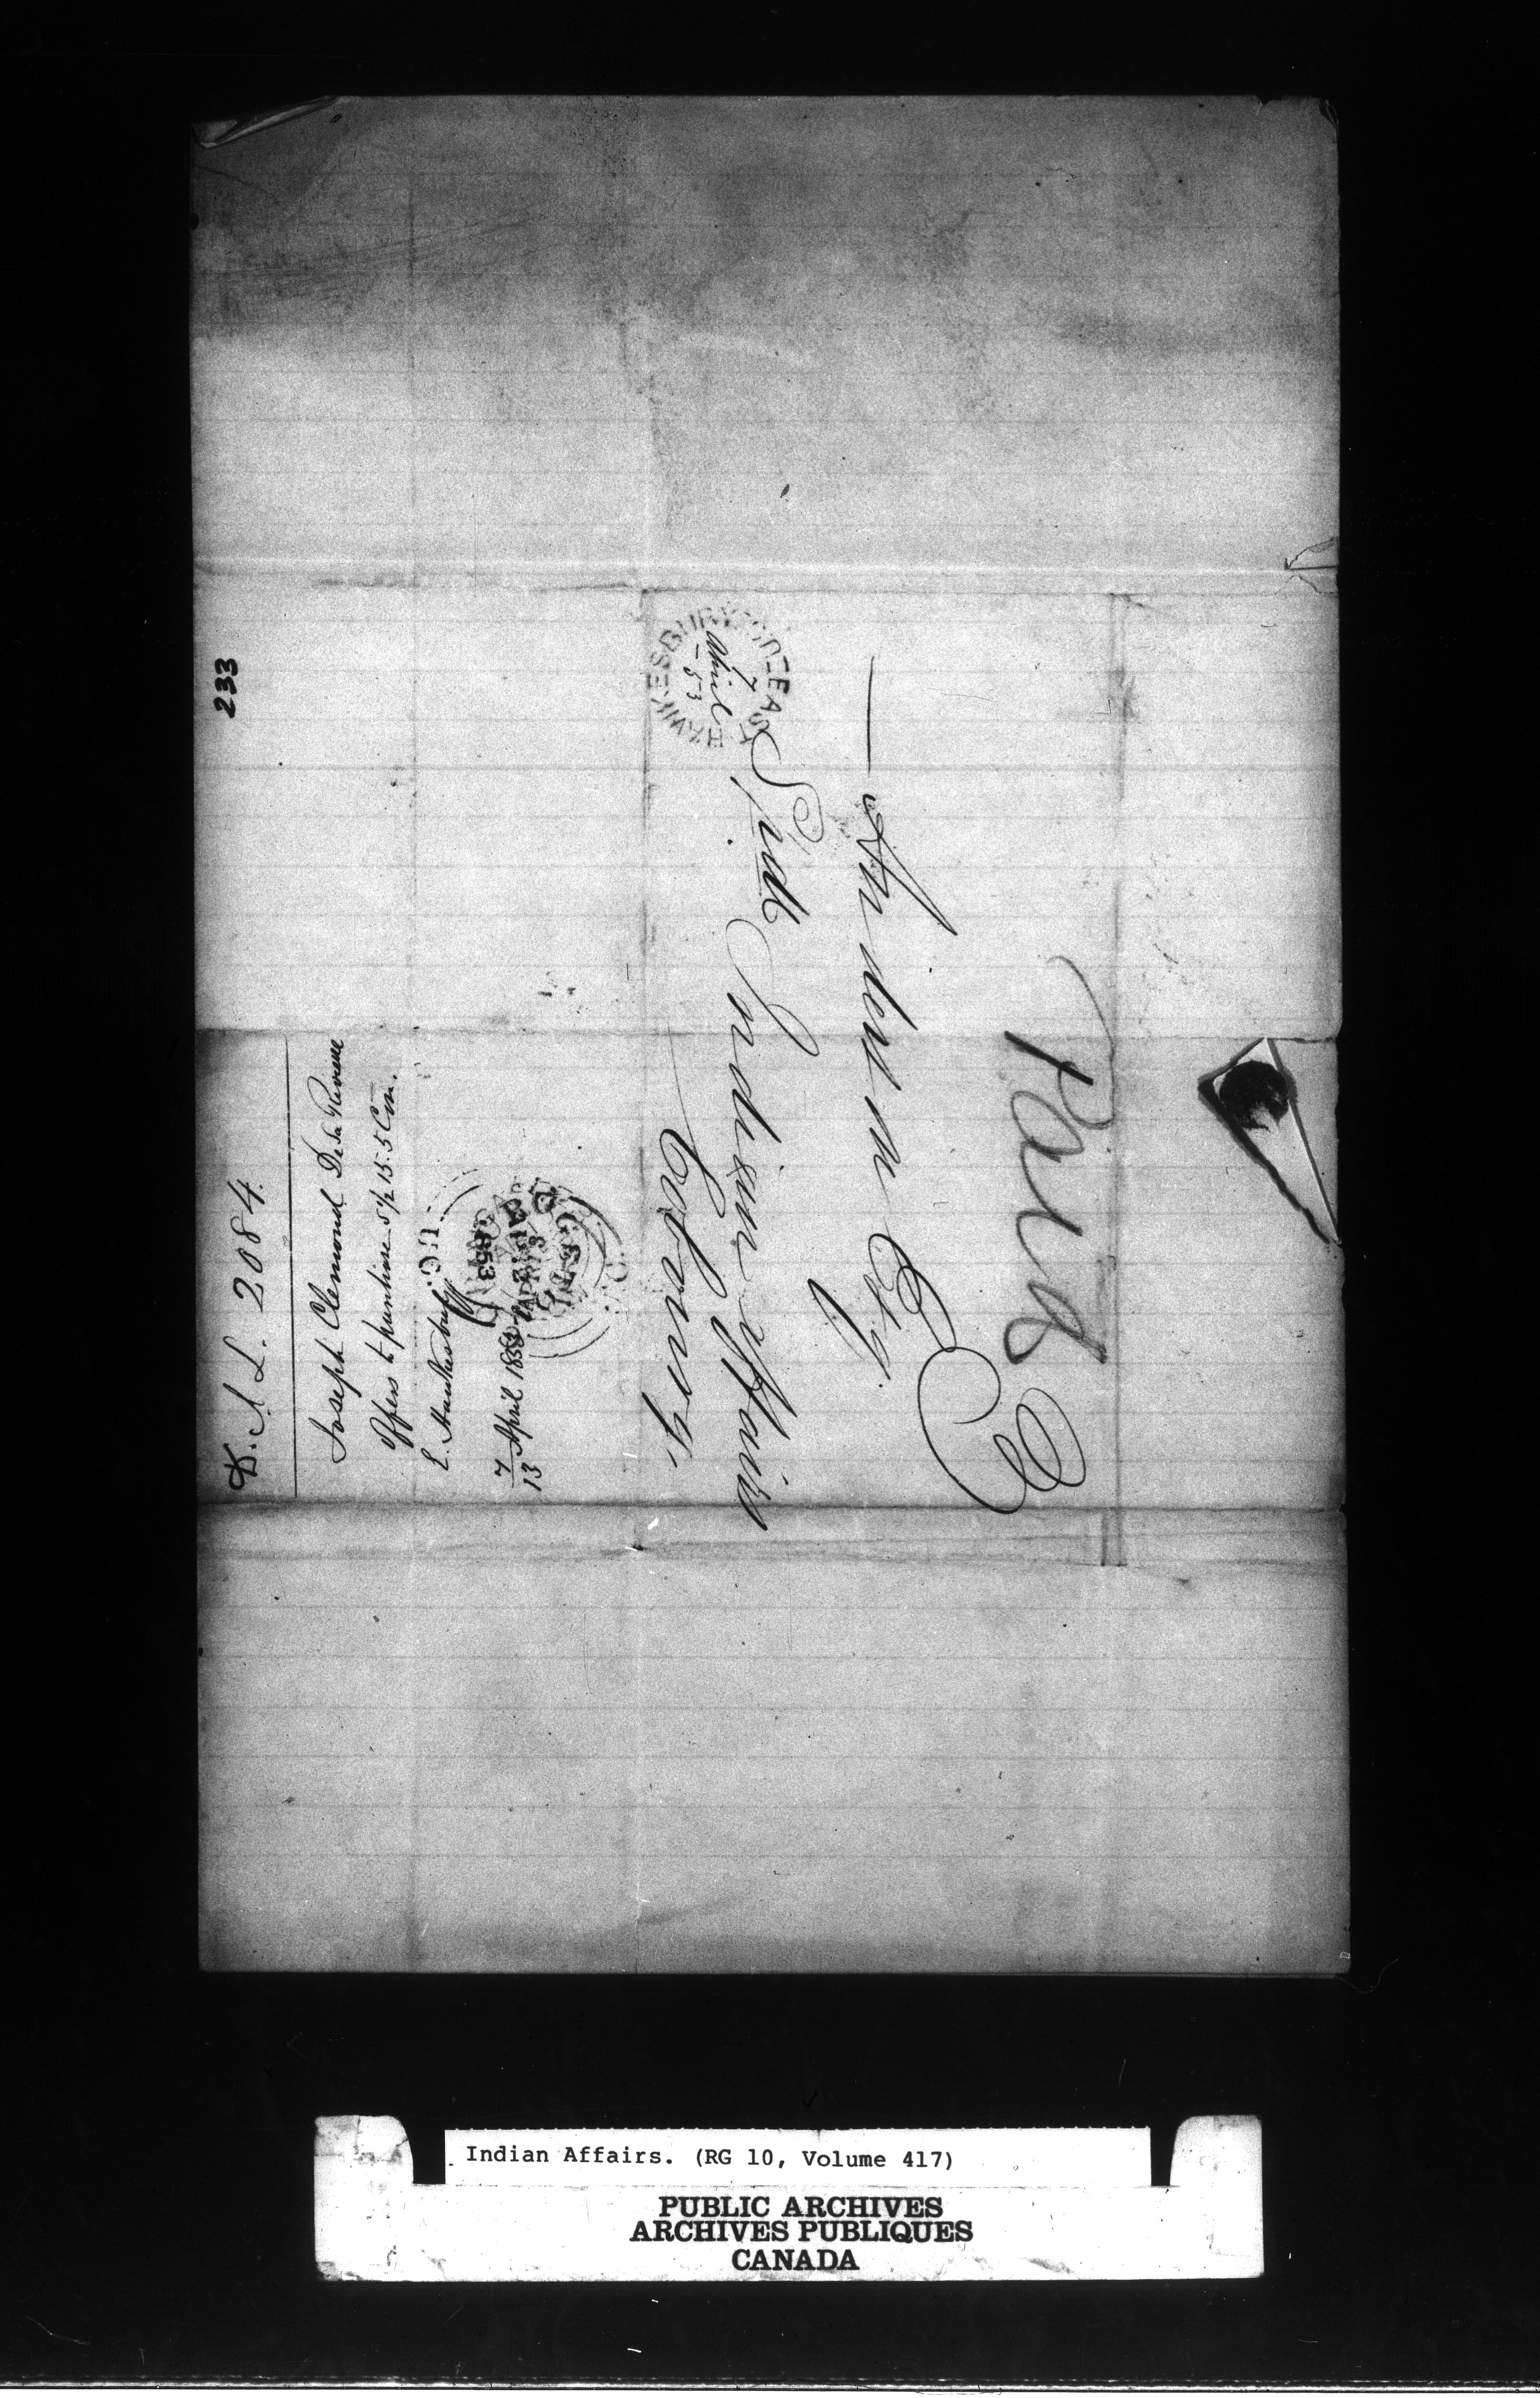 233
D. I. L. 2084.
Joseph Clemond De la Ronde
Offers to purchase S 1/2 15. 5 Con.
E. Hawkesbury
7 April 1853
13
U.C.
APR 13
1853
HAWKESBURY EAST
7
April
-53
Paid 3
— Anderson Esq.
Supdt Indian Affairs
Cobourg
Indian Affairs. (RG 10, Volume 417)
PUBLIC ARCHIVES
ARCHIVES PUBLIQUES
CANADA